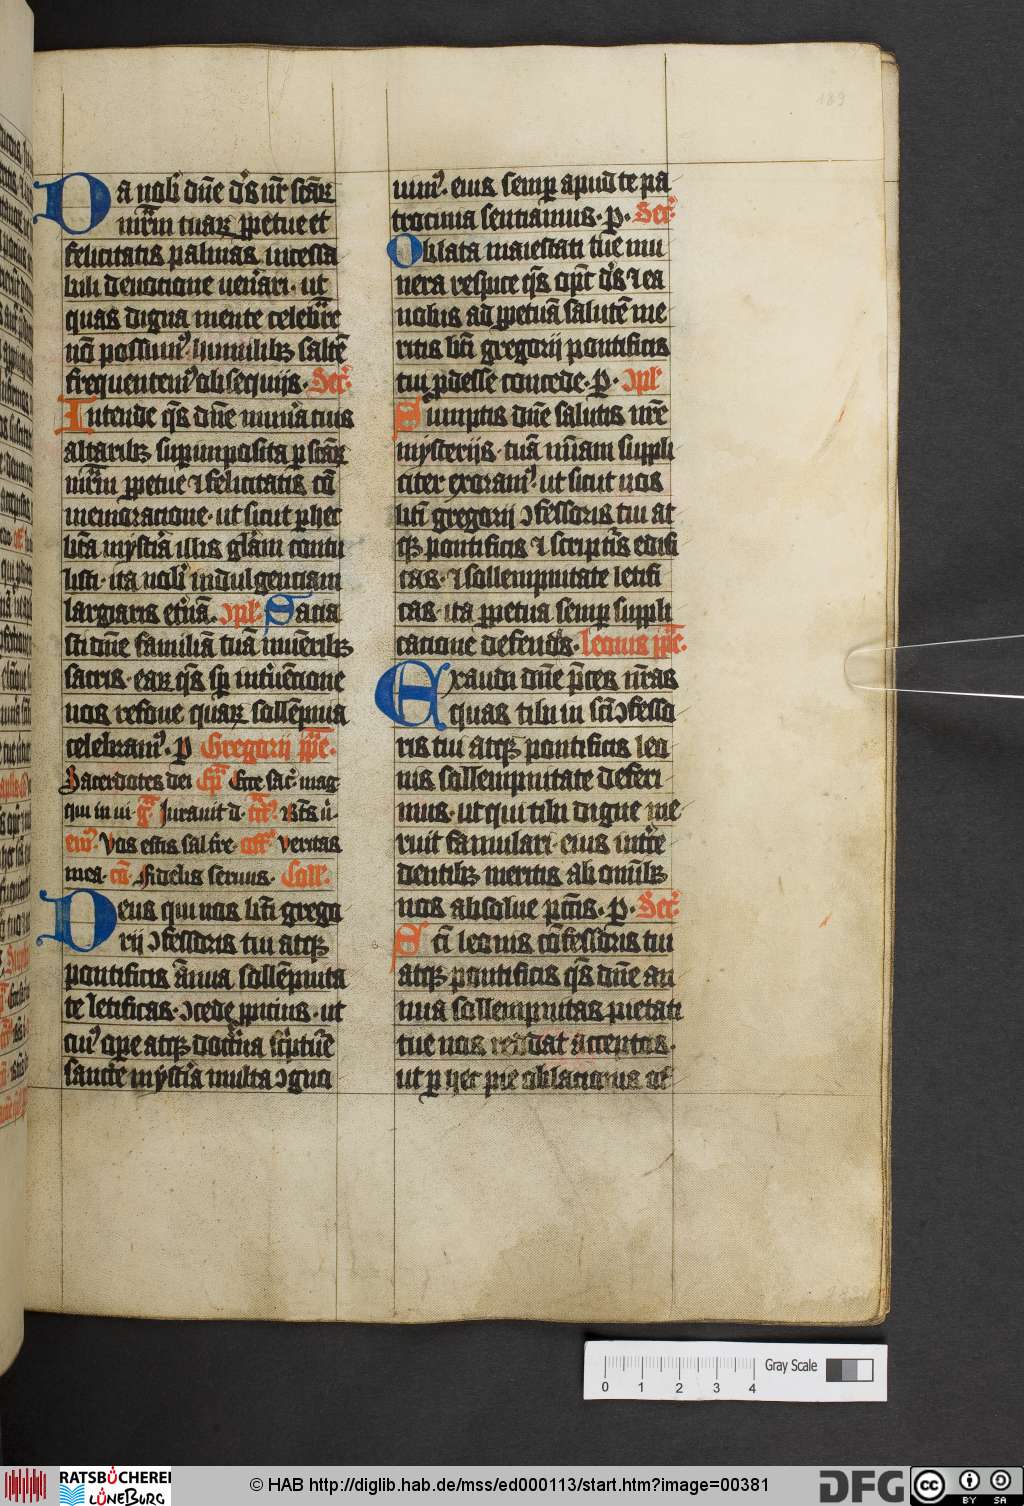 189
Da nob̄ dn̄e ds̄ nr̄ scāꝝ
mr̄m tuaꝝ ꝑpetue et
felicitatis palmas incessa
bili deuocione uen̄ari· ut
quas digna mente celebrare
nō possumꝰ· humilibꝫ saltē
frequentemꝰ obsequijs· Secr̄·
Intende q̄s dn̄e mun̄a tuis
altaribꝫ suꝑimposita ꝑ scāꝝ
mr̄m ꝑpetue ⁊ felicitatis cō
memoracione· ut sicut ꝑ hec
bt̄a myst̄ia illis glām contu
listi· ita nob̄ indulgenciam
largiaris et̄nā· ↄpl̄· Sacia
sti dn̄e familiā tuā mun̄eribꝫ
sacris· eaꝝ q̄s sꝑ int̄uencione
nos refoue quaꝝ sollēpnia
celebramꝰ· ꝑ Gregorii pp̄e·
Sacerdotes dei Ep̄l̄a Ecce sac̄· mag
qui in ui· gr̄a Iurauit d· tc̄s· Bt̄s ū·
ewꝰ· Vos estis sal tr̄e· off̄ veritas
mea· cō· Fidelis seruus· Coll̄·
Deus qui nos bt̄i grego
rij ↄfessoris tui atqꝫ
pontificis ānua sollēpnita
te letificas· ↄcede ꝓpicius· ut
cuiꝰ oꝑe atqꝫ doct̄na sc̄ptur̄e
sancte myst̄ia multa ↄgno
uimꝰ· eius semꝑ apud te pa
trocinia sentiamus· ꝑ· Secr̄·
Oblata maiestati tue mu
nera respice q̄s opt̄ ds̄ ⁊ ea
nobis ad ꝑpetuā salutē me
ritis bt̄i gregorij pontificis
tui ꝓdesse concede· ꝑ· ↄpl̄
Sumptis dn̄e salutis nr̄e
mysterijs· tuā cl̄emenciam suppli
citer exoramꝰ· ut sicut nos
bt̄i gregorij ↄfessoris tui at
qꝫ pontificis ⁊ scriptis edifi
cas· ⁊ sollempnitate letifi
cas· ita ꝑpetua semꝑ suppli
catione defendas· Leonis pp̄e·
Exaudi dn̄e p̄ces nr̄as
quas tibi in sc̄i ↄfesso
ris tui atqꝫ pontificis leo
nis sollempnitate deferi
mus· ut qui tibi digne me
ruit famulari· eius int̄ce
dentibꝫ meritis ab omībꝫ
nos absolue pcc̄is· ꝑ· Secr̄·
Sc̄i leonis cōfessoris tui
atqꝫ pontificis q̄s dn̄e an
nua sollempnitas pietati
tue nos reddat acceptos·
ut ꝑ hec pie oblacionis of
0 1 2 3 4
Gray Scale
RATSBÜCHEREI
LÜNEBURG
© HAB http://diglib.hab.de/mss/ed000113/start.htm?image=00381
DFG
cc BY SA